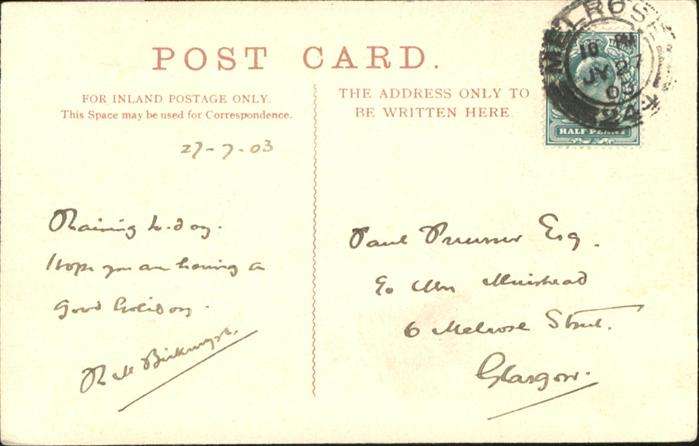 POST CARD.
FOR INLAND POSTAGE ONLY.
This Space may be used for Correspondence.
27-7.03
Raining to-day.
Hope you are having a
good holiday.
THE ADDRESS ONLY TO
BE WRITTEN HERE.
MELROSE
JY 27
03
24
HALF PENNY
Paul Esq.
c/o Mrs Muirhead
6 Melrose Street.
Glasgow.